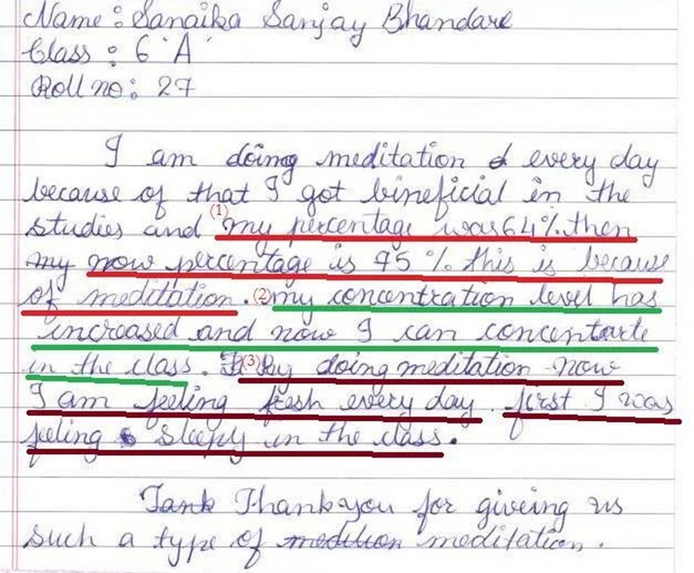 Name : Sanaika Sanjay Bhandare
Class : 6 'A'
Roll no : 27
I am doing meditation every day
because of that I got bineficial in the
studies and (1) my percentage was 64% then
my now percentage is 75 % this is because
of meditation. (2) my concentration level has
increased and now I can concentarte
in the class. (3) By doing meditation now
I am feeling fresh every day. first I was
feeling sleepy in the class.
Tank Thankyou for giveing us
such a type of medition meditation.